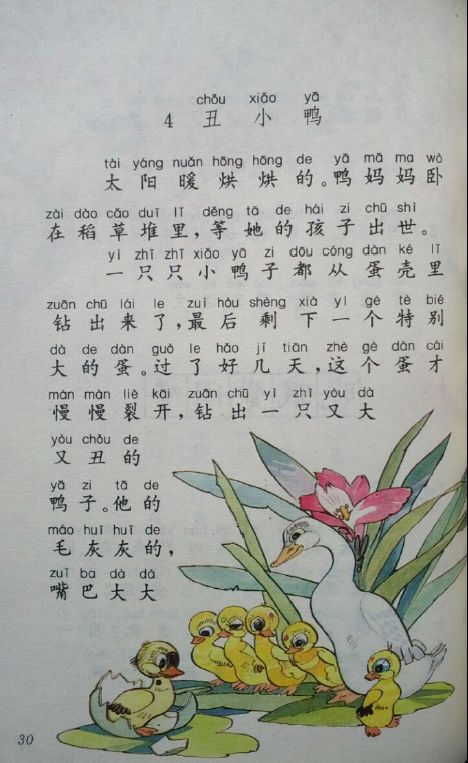 chǒu xiǎo yā
4 丑 小 鸭
tài yáng nuǎn hōng hōng de yā mā ma wò
太阳暖烘烘的。鸭妈妈卧
zài dào cǎo duī lǐ děng tā de hái zi chū shì
在稻草堆里,等她的孩子出世。
yì zhī zhī xiǎo yā zi dōu cóng dàn ké lǐ
一只只小鸭子都从蛋壳里
zuān chū lái le zuì hòu shèng xià yí gè tè bié
钻出来了,最后剩下一个特别
dà de dàn guò le hǎo jǐ tiān zhè gè dàn cái
大的蛋。过了好几天,这个蛋才
màn màn liè kāi zuān chū yì zhī yòu dà
慢慢裂开,钻出一只又大
yòu chǒu de
又丑的
yā zi tā de
鸭子。他的
máo huī huī de
毛灰灰的,
zuǐ ba dà dà
嘴巴大大
30